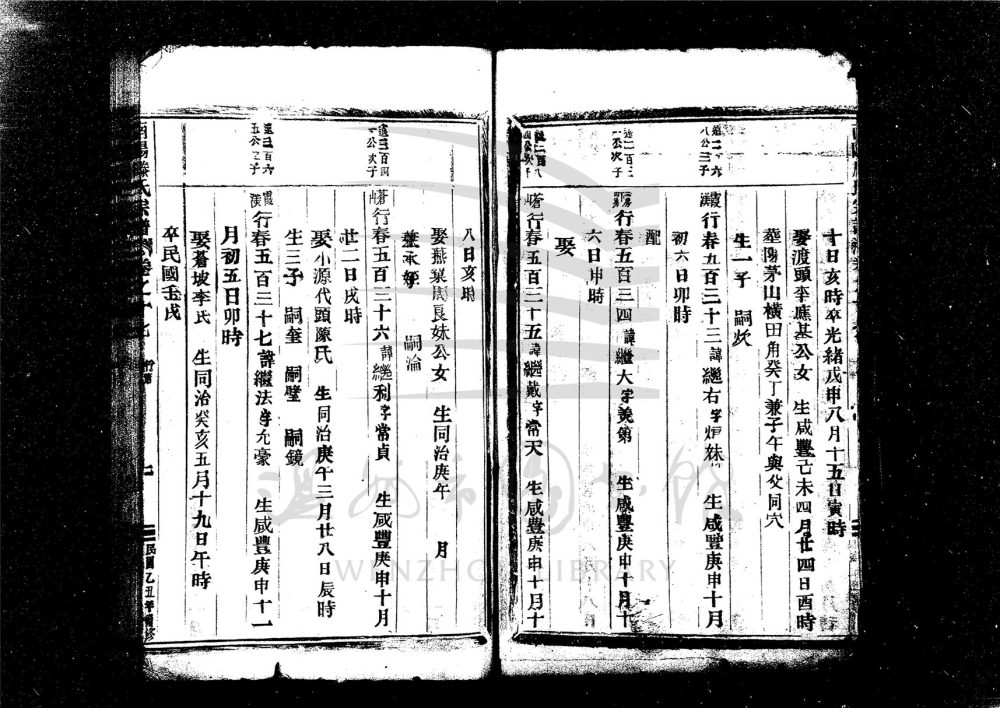 十日亥時卒光緒戊申八月十五日寅時
娶渡頭李應基公女　生咸豐己未四月廿四日酉時
葬陽茅山橫田角癸丁兼子午與父同穴
生一子　嗣
八公三子
霞 行春五百三十三　諱繼右　字　妹　生咸豐庚申十月
初六日卯時
配
公次子
行春五百三四　諱繼大　字美第　生咸豐庚申十月十
六日申時
娶
公次子
蒼山 行春五百三十五　諱繼戴　字常天　生咸豐庚申十月十
八日亥時
娶燕巢周良妹公女　生同治庚午　月
嗣淪
遠三百四
公次子
蒼山 行春五百三十六　諱繼利　字常貞　生咸豐庚申十月
廿二日戌時
娶小源代頭陳氏　生同治庚午三月廿八日辰時
生三子　嗣奎　嗣璧　嗣鏡
遠三百六
五公之子
霞溪 行春五百三十七　諱繼法　字允豪　生咸豐庚申十一
月初五日卯時
娶蒼坡李氏　生同治癸亥五月十九日午時
卒民國壬戌
南陽滕氏宗譜
民國乙丑年
WENZHOU LIBRARY